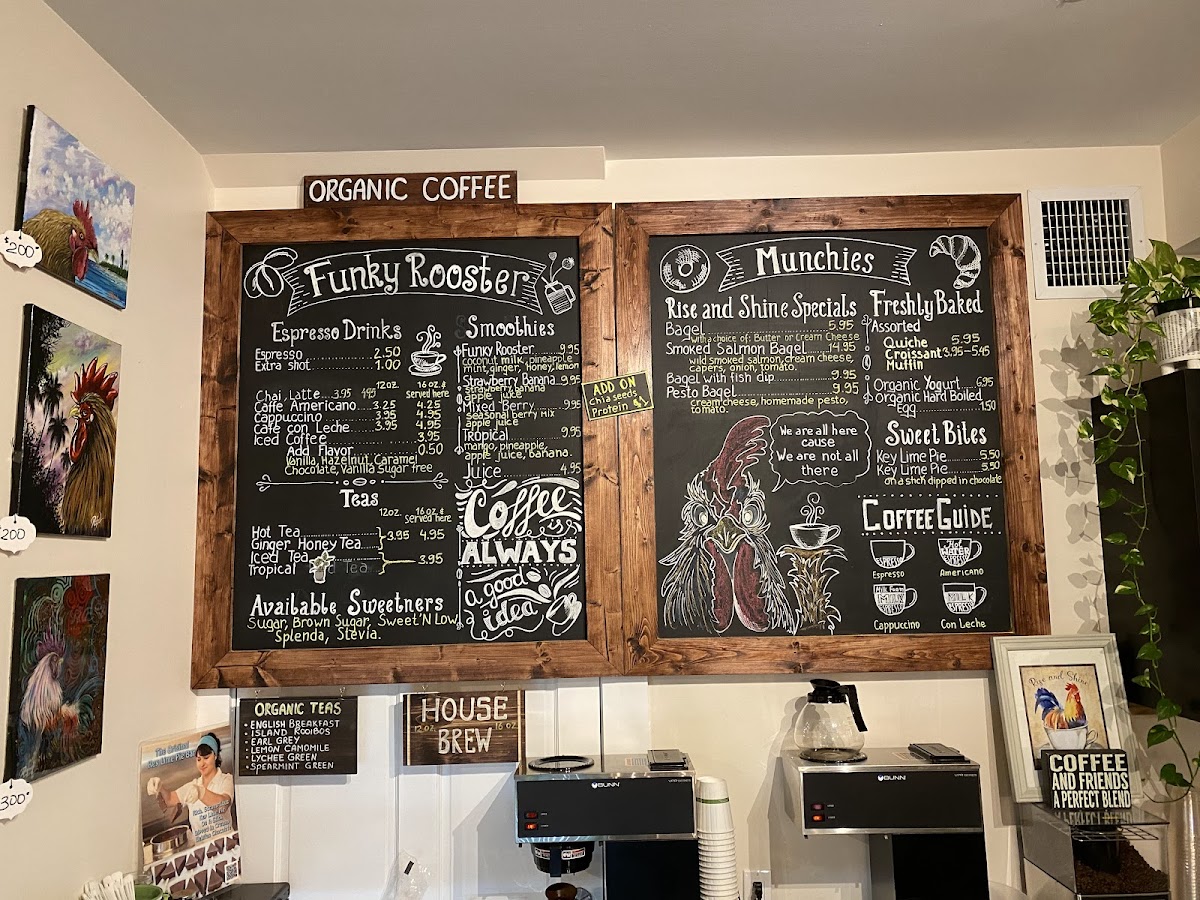 ORGANIC COFFEE
Funky Rooster
Espresso Drinks
Espresso 2.50
Extra shot 1.00
12oz. 16oz. &
Served here
Chai Latte 3.95 4.95
Caffe Americano 3.25 4.25
Cappuccino 3.95 4.95
Cafe con Leche 3.95 4.95
Iced Coffee 3.95
Add Flavor 0.50
Vanilla, Hazelnut, Caramel
Chocolate, Vanilla Sugar free
Teas
12oz. 16oz. &
Served here
Hot Tea
Ginger Honey Tea 3.95 4.95
Iced Tea
Tropical Tea 3.95
Available Sweetners
Sugar, Brown Sugar, Sweet'N Low,
Splenda, Stevia.
Smoothies
Funky Rooster 9.95
coconut milk, pineapple
mint, ginger, honey, lemon
Strawberry Banana 9.95
strawberry, banana
apple juice
Mixed Berry 9.95
seasonal berry mix
apple juice
Tropical 9.95
mango, pineapple,
apple juice, banana.
Juice 4.95
Coffee
is
ALWAYS
a good
idea
ADD ON
Chia seeds
Protein $1
Munchies
Rise and Shine Specials
Bagel 5.95
with a choice of: Butter or Cream Cheese
Smoked Salmon Bagel 14.95
wild smoked salmon, cream cheese,
capers, onion, tomato.
Bagel with fish dip 9.95
Pesto Bagel 9.95
cream cheese, homemade pesto,
tomato.
We are all here
cause
We are not all
there
Freshly Baked
Assorted
Quiche 5.95
Croissant 3.95-5.45
Muffin
Organic Yogurt 6.95
Organic Hard Boiled
Egg 1.50
Sweet Bites
Key Lime Pie 5.50
Key Lime Pie 5.50
on a stick dipped in chocolate
Coffee Guide
ESPRESSO
Espresso
Hot
WATER
ESPRESSO
Americano
Milk Foam
MILK
ESPRESSO
Cappuccino
MILK
ESPRESSO
Con Leche
$200
$200
$300
ORGANIC TEAS
• ENGLISH BREAKFAST
• ISLAND ROOIBOS
• EARL GREY
• LEMON CAMOMILE
• LYCHEE GREEN
• SPEARMINT GREEN
HOUSE
12oz. 16oz.
BREW
The Original
Key Lime Pie Bar
BUNN
BUNN
Rise and Shine
COFFEE
AND FRIENDS
A PERFECT BLEND